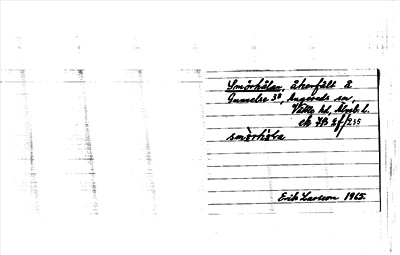 Smörhålan, åkerfält å
Gunnelse 3⁸, Angereds sn,
Vättle hd, Älvsb. l.
ek 7B 2f/235
smörhòla
Erik Larsson 1965.